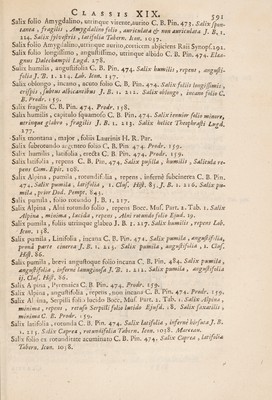 CLASSIS XIX. 591
Salix folio Amygdalino, utrinque virente, aurito C. B. Pin. 473. Salix spon-
tanea, fragilis, Amygdalino folio, auriculata & non auriculata J. B. 1.
214. Salix silvestris, latifolia Tabern. Icon. 1037.
Salix folio Amygdalino, utrinque aurito, corticem abjiciens Raii Synops. 292.
Salix folio longissimo, angustissimo, utrinque albido C. B. Pin. 474. Elæa-
gnos Dalechampii Lugd. 278.
Salix humilis, angustifolia C. B. Pin. 474. Salix humilis, repens, angusti-
folia J. B. 1. 214. Lob. Icon. 137.
Salix oblongo, incano, acuto folio C. B. Pin. 474. Salix foliis longissimis,
crispis, subtus albicantibus J. B. 1. 212. Salix oblongo, incano folio C.
B. Prodr. 159.
Salix fragilis C. B. Pin. 474. Prodr. 158.
Salix humilis, capitulo squamoso C. B. Pin. 474. Salix tenuior folio minore,
utrinque glabro, fragilis J. B. 1. 213. Salix helice Theophrasti Lugd.
277.
Salix montana, major, foliis Laurinis H. R. Par.
Salix subrotundo argenteo folio C. B. Pin. 474. Prodr. 159.
Salix humilis, latifolia, erecta C. B. Pin. 474. Prodr. 159.
Salix latifolia, repens C. B. Pin. 474. Salix pusilla, humilis, Salicula re-
pens Com. Epit. 108.
Salix Alpina, pumila, rotundifolia, repens, infernè subcinerea C. B. Pin.
474. Salix pumila, latifolia, 1. Clus. Hist. 85. J. B. 1. 216. Salix pu-
mila, prior Dod. Pempt. 843.
Salix pumila, folio rotundo J. B. 1. 217.
Salix Alpina, Alni rotundo folio, repens Bocc. Mus. Part. 2. Tab. 1. Salix
Alpina, minima, lucida, repens, Alni rotundo folio Ejusd. 19.
Salix pumila, foliis utrinque glabro J. B. 1. 217. Salix humilis, repens Lob.
Icon. 138.
Salix pumila, Linifolia, incana C. B. Pin. 474. Salix pumila, angustifolia,
prona parte cinerea J. B. 1. 213. Salix pumila, angustifolia, 1. Clus.
Hist. 86.
Salix pumila, brevi angustoque folio incano C. B. Pin. 484. Salix pumila,
angustifolia, infernè lanuginosa J. B. 1. 212. Salix pumila, angustifolia
ij. Clus. Hist. 86.
Salix Alpina, Pyrenaica C. B. Pin. 474. Prodr. 159.
Salix Alpina, angustifolia, repens, non incana C. B. Pin. 474. Prodr. 159.
Salix Alpina, Serpilli folio lucido Bocc. Mus. Part. 2. Tab. 1. Salix Alpina,
minima, repens, retuso Serpilli folio lucido Ejusd. 18. Salix saxatilis,
minima C. B. Prodr. 159.
Salix latifolia, rotunda C. B. Pin. 474. Salix latifolia, infernè hirsuta J. B.
1. 215. Salix Caprea, rotundifolia Tabern. Icon. 1038. Marceau.
Salix folio ex rotunditate acuminato C. B. Pin. 474. Salix Caprea, latifolia
Tabern. Icon. 1038.